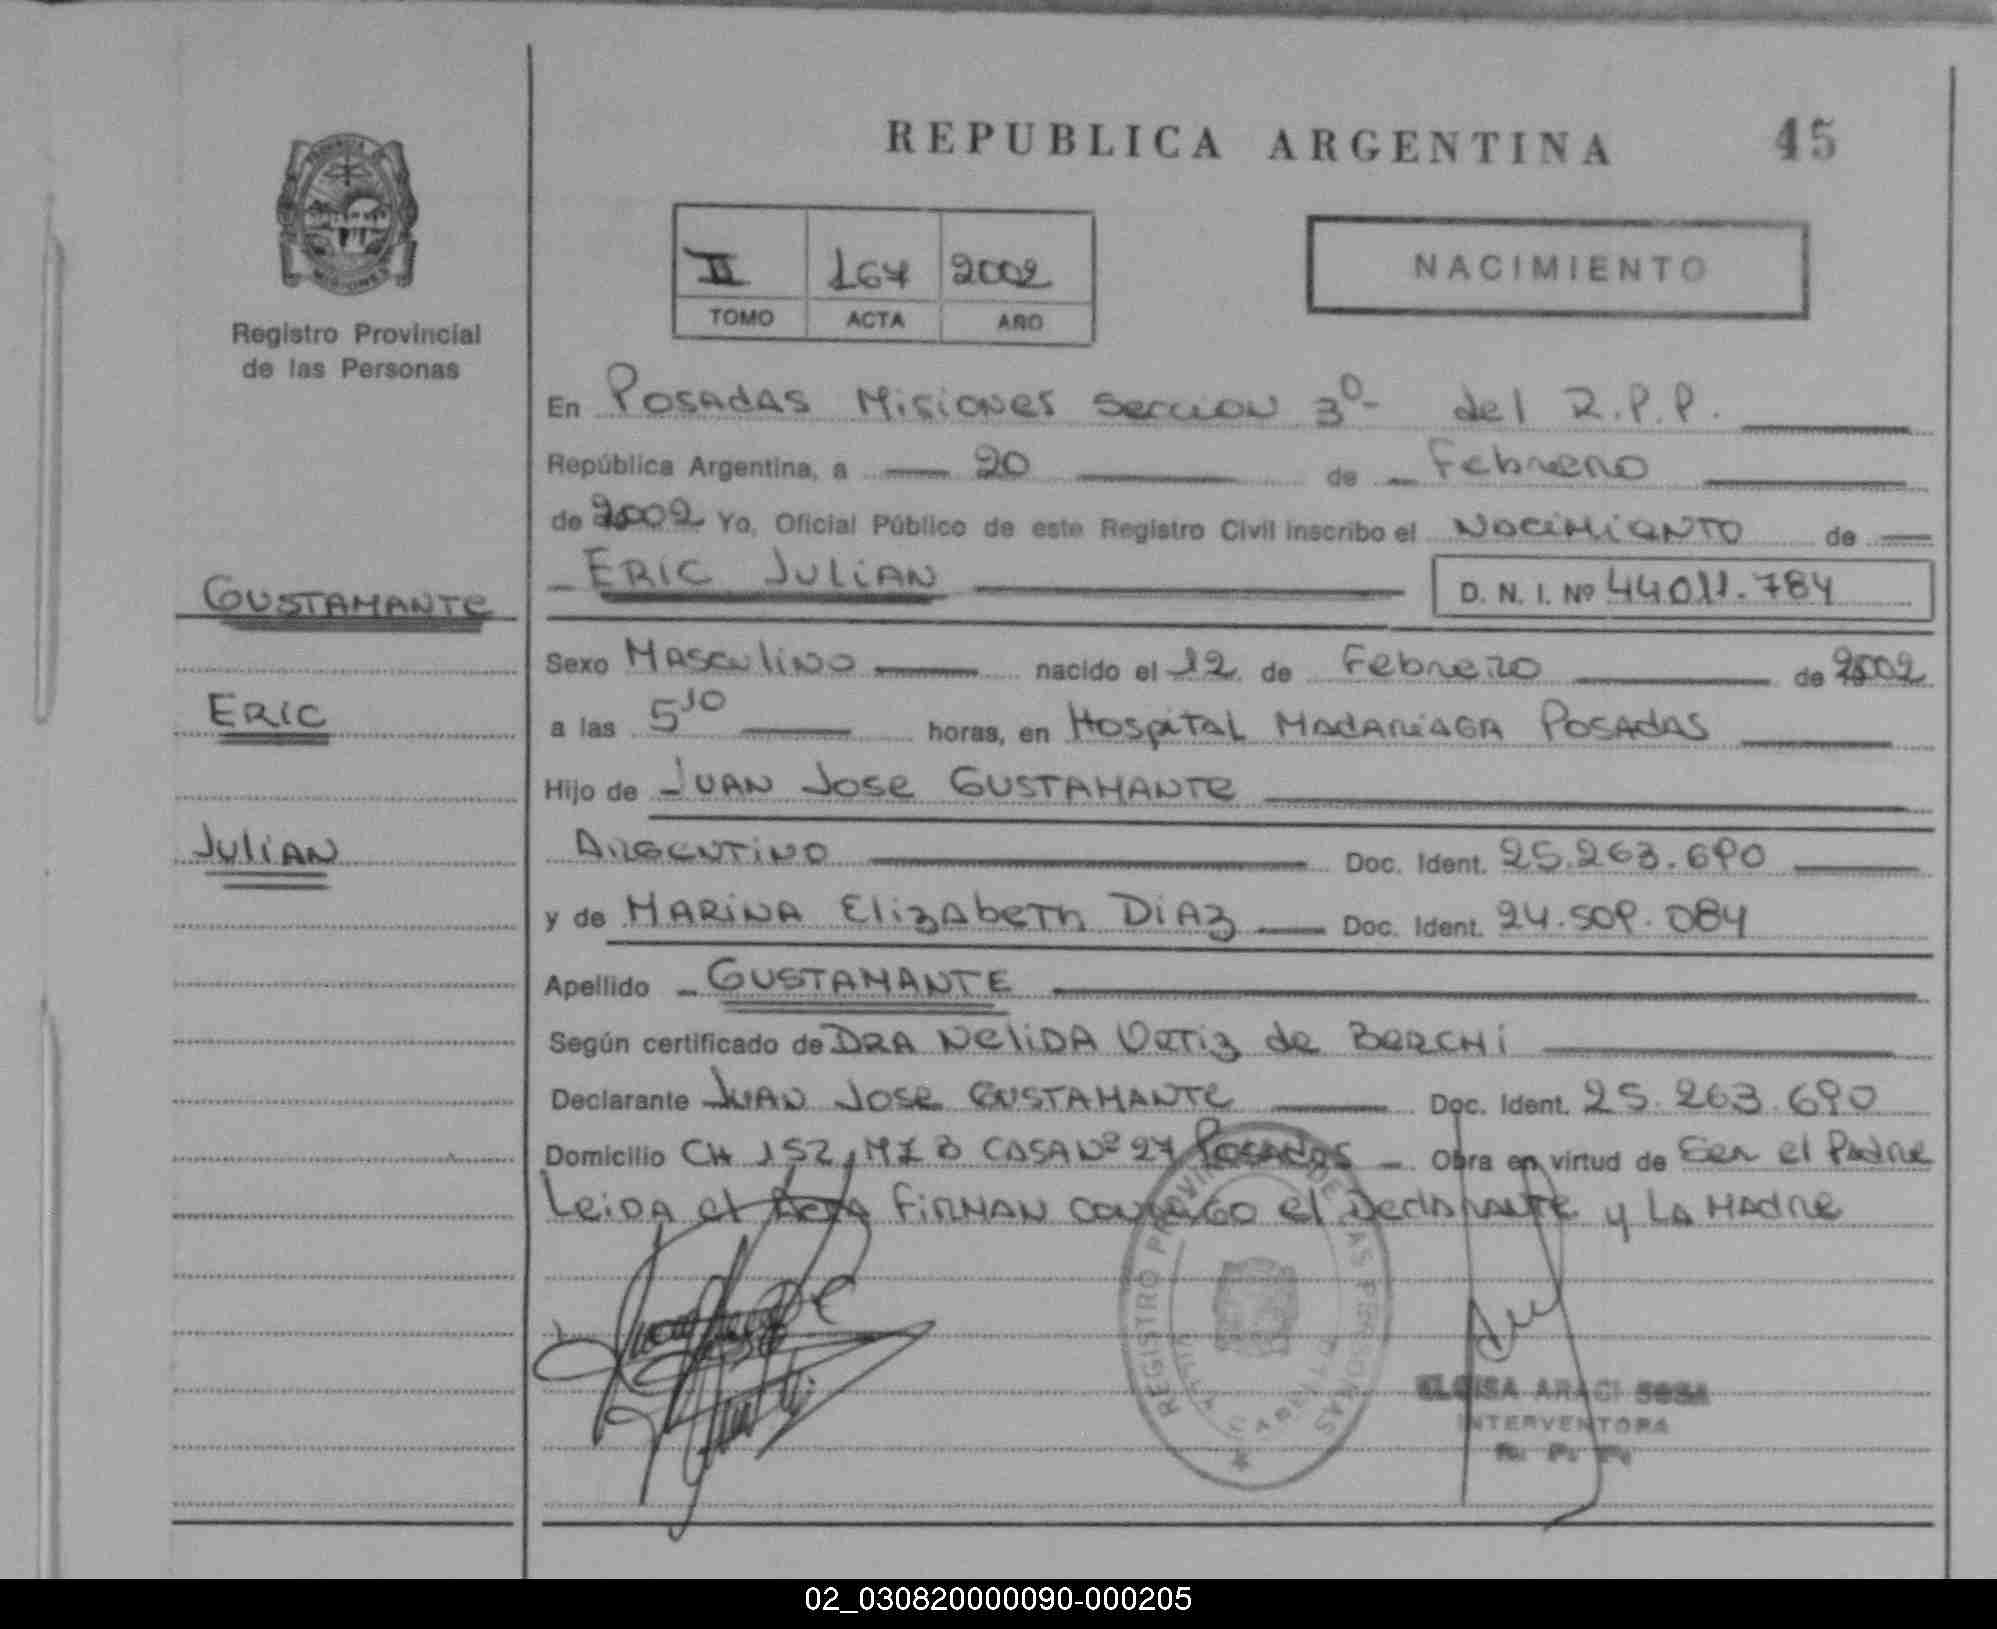 REPUBLICA ARGENTINA 45
II 167 2002
TOMO ACTA AÑO
NACIMIENTO
Registro Provincial
de las Personas
En Posadas Misiones Seccion 3º- del R.P.P.
República Argentina, a 20 de Febrero
de 2002 Yo, Oficial Público de este Registro Civil inscribo el Nacimianto de
ERIC JULIAN D. N. I. Nº 44011.784
GUSTAMANTE
Sexo Masculino nacido el 12 de Febrero de 2002
ERIC
a las 5 10 horas, en Hospital Madariaga Posadas
Hijo de JUAN JOSE GUSTAMANTE
JULIAN
ARGENTINO Doc. Ident. 25.263.690
y de MARINA ElizAbeTh DIAZ Doc. Ident. 24.509.084
Apellido GUSTAMANTE
Según certificado de DRA NELIDA ORTIZ de BERCHI
Declarante JUAN JOSE GUSTAMANTE Doc. Ident. 25.263.690
Domicilio CH 152, MZ B CASA Nº 27 Posadas Obra en virtud de Ser el Padre
Leida el Acta Firman conmigo el Declarante y La Madre
REGISTRO PROVINCIAL DE LAS PERSONAS
VILLA CABELLO
ELOISA ARACI SOSA
INTERVENTORA
R. P. P.
02_030820000090-000205